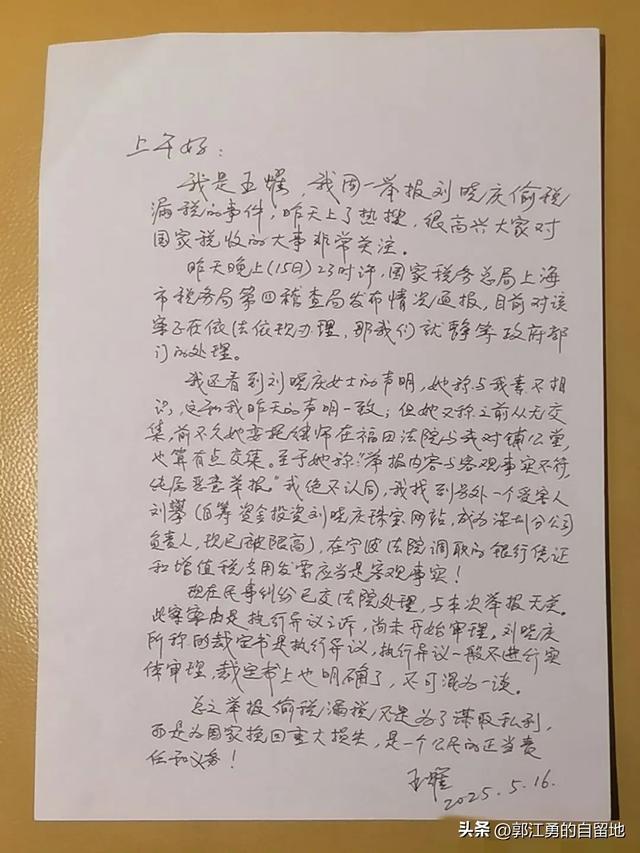 上午好：
我是王耀，我周一举报刘晓庆偷税
漏税的事件，昨天上了热搜，很高兴大家对
国家税收的大事非常关注。
昨天晚上(15日)23时许，国家税务总局上海
市税务局第四稽查局发布情况通报，目前对该
案子在依法依规办理，那我们就静等政府部
门的处理。
我还看到刘晓庆女士的声明，她称与我素不相
识，这和我昨天的声明一致；但她又称之前从无交
集，前不久她委托律师在福田法院与我对铺公堂，
也算有点交集。至于她称："举报内容与客观事实不符，
纯属恶意举报。"我绝不认同，我找到另外一个受害人
刘攀(自筹资金投资刘晓庆珠宝网站，成为深圳分公司
负责人，现已被限高)，在宁波法院调取的银行凭证
和增值税专用发票应当是客观事实！
现在民事纠纷已交法院处理，与本次举报无关。
此案案由是执行异议之诉，尚未开始审理。刘晓庆
所称的裁定书是执行异议，执行异议一般不进行实
体审理，裁定书上也明确了，不可混为一谈。
总之举报偷税漏税不是为了谋取私利，
而是为国家挽回重大损失，是一个公民的正当责
任和义务！
王耀
2025.5.16.
头条 @郭江勇的自留地